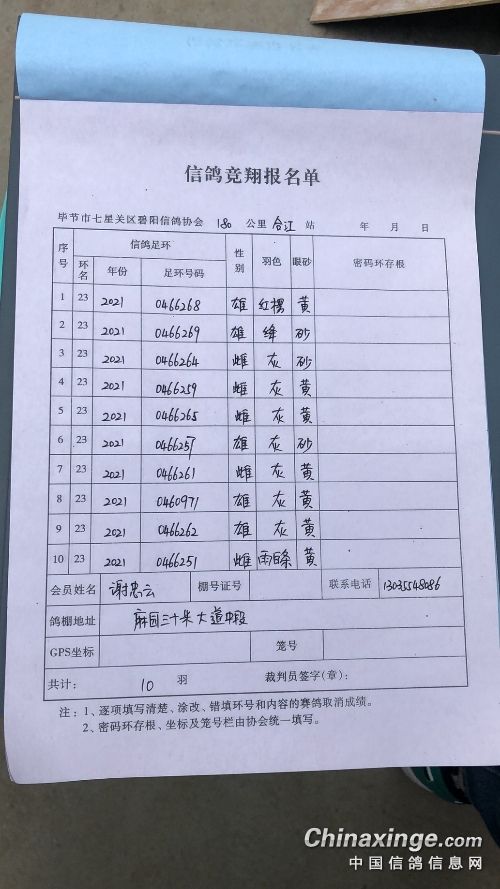 信鸽竞翔报名单
毕节市七星关区碧阳信鸽协会 180 公里 合江 站 年 月 日
序号 信鸽足环 性别 羽色 眼砂 密码环存根
环名 年份 足环号码
1 23 2021 0466268 雄 红楞 黄
2 23 2021 0466269 雄 绛 砂
3 23 2021 0466264 雌 灰 砂
4 23 2021 0466259 雌 灰 黄
5 23 2021 0466265 雌 灰 黄
6 23 2021 0466257 雄 灰 砂
7 23 2021 0466261 雌 灰 黄
8 23 2021 0460971 雄 灰 黄
9 23 2021 0466262 雄 灰 黄
10 23 2021 0466251 雌 雨白条 黄
会员姓名 谢忠云 棚号证号 联系电话 13035548086
鸽棚地址 麻园三十米大道中段
GPS坐标 笼号
共计: 10 羽 裁判员签字(章):
注:1、逐项填写清楚、涂改、错填环号和内容的赛鸽取消成绩。
2、密码环存根、坐标及笼号栏由协会统一填写。
Chinaxinge.com
中国信鸽信息网